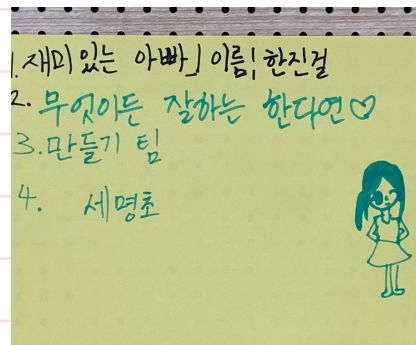 1. 재미있는 아빠」 이름| 한진걸
2. 무엇이든 잘하는 한다연♡
3. 만들기 팀
4. 세명초